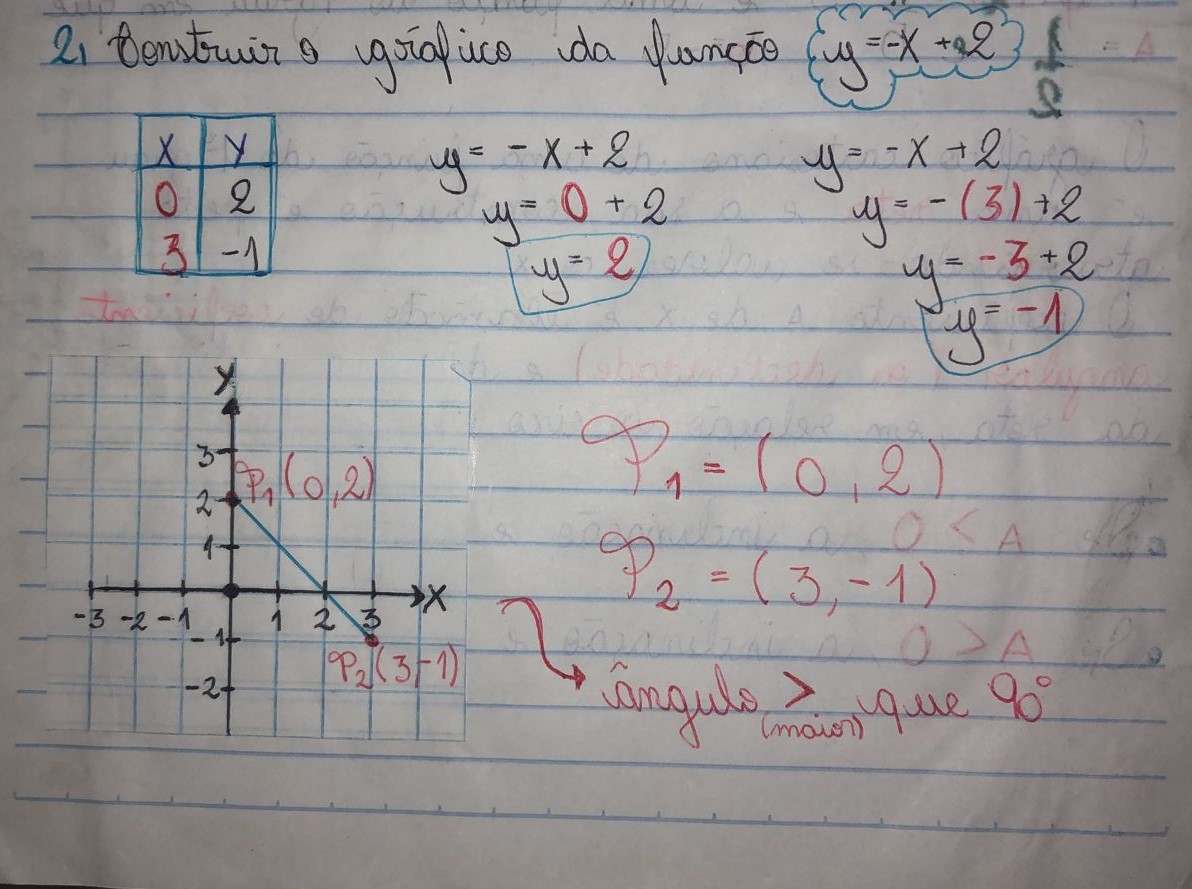 2, Construir o gráfico da função y = -x + 2
x y
0 2
3 -1
y = - x + 2
y = 0 + 2
y = 2
y = -x + 2
y = - (3) + 2
y = -3 + 2
y = -1
Y
3
2
1
P1 (0,2)
-3 -2 -1 1 2 3 X
-1
-2
P2 (3,-1)
P1 = (0, 2)
P2 = (3, -1)
ângulo > que 90°
(maior)